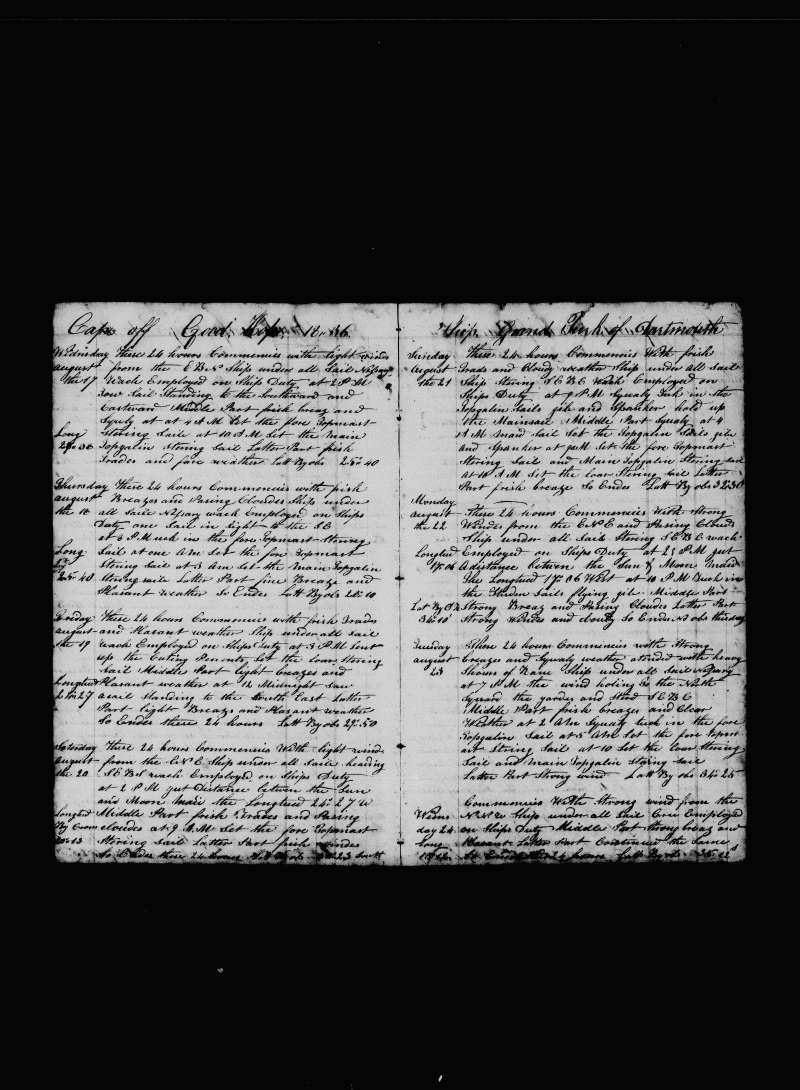 Cape off Good Hope 1836
Wednsday These 24 hours Commencies with light winds
August from the E B N Ships under all Sail Nessary
the 17 Wach Employed on Ship Duty at 2 P M
Saw Sail Standing to the Southward and
Eastward Middle Part frish breaz and
Squly at at 4 A M Set the fore Topmast
Long Stering Saile at 10 A M Set the Main
Topgalin Stering Sail Latter Part frish
Trades and fare weather Latt By obs 25" 40
Thursday These 24 hours Commencies with frish
August Breazes and Pasing Cloudes Ships under
the 18 all Sail Nessary wach Employed on Ships
Duty one Sail in Sight to the S E
at 8 P M in the fore Topmast Stering
Long Sail at one A m Set the fore Topmast
Stering Sail at 5 A m Set the Main Topgalin
25" 40 Stering Saile Latter Part fine Breaze and
Plasant weather So Endes Latt By obs 28" 10
Friday These 24 hours Commencies with frish Trades
August and Plasant weather Ship under all Sail
the 19 wach Employed on Ships Duty at 3 P M Sent
up the Cuting Penents Set the Lower Stering
Sail Middle Part light Breazes and
Longtud Plasant weather at 12 Midnight Saw
27 a sail Standing to the South East Latter
Part light Breazes and Plasant weather
So Endes these 24 hours Latt By obs 29" 50
Saterday These 24 hours Commencies With light winds
August from the E N E Ship under all Saile heading
the 20 S E B S wach Employed on Ships Duty
at 2 P M got Distance betwen the Sun
and Moon Made the Longtued 24" 27 W
Longtud Middle Part frish Trades and Pasing
By Crom cloudes at 9 A M Set the fore Topmast
20" 13 Stering Sail Latter Part frish windes
So Endes these 24 hours Latt By obs 23 South
Ship Grand Turk of Dartmouth
Sunday These 24 hours Commencies With frish
August Trads and Cloudy weather Ship under all Saile
the 21 Ship Stering S E B E Wach Employed on
Ships Duty at 9 P M Squaly Tuk in the
Topgalin Sails jib and Spanker hald up
the Mainsail Middle Part Squaly at 4
A M Maid Sail Set the Topgalin Sails jib
and Spanker at 9 A M Set the fore Topmast
Stering Sail and Main Topgalin Stering Sail
at 10 A M Set the Lower Stering Sail Latter
Part frish breaze So Endes Latt By obs 32" 30
Monday
August These 24 hours Commencies With Strong
the 22 Windes from the E N E and Pasing Clouds
Ship under all Sail Stering S E B E wach
Longtud Employed on Ships Duty at 2 P M got
17" 06 A distance betwen the Sun & Moon Made
the Longtued 17" 06 West at 10 P M Tuck in
the Studen Sails flying jib Middle Part
Latt By Obs Strong Breaz and Pasing Cloudes Latter Part
34" 10 Strong Windes and Cloudy So Endes No obs this day
Tuesday These 24 hours Commencies with Strong
August breazes and Squaly weather atended with heavy
23 Showrs of Rane Ship under all Sail Nessary
at 7 P M the wind holing to the North
Squard the yardes and Stood S E B E
Middle Part frish breazes and Clear
Weather at 2 A m Squaly tuck in the fore
Topgalin Sail at 5 A m Set the fore Topm
ast Stering Sail at 10 Set the lour Stering
Sail and Main Topgalin Stering Sail
Latter Part Strong wind Latt By obs 34" 25
Commencies With Strong wind from the
Wedns N N W Ship under all Sail Crew Employed
day 24 on Ships Duty Middle Part Strong breaz and
Long Plasant Latter Part Contenues the Same
So Endes these 24 hours Latt By obs 35" 02